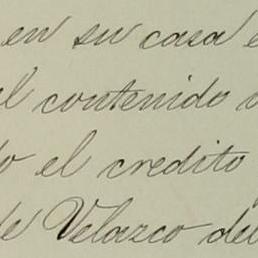 en su casa e
el contenido
o el credito
de Velazco del